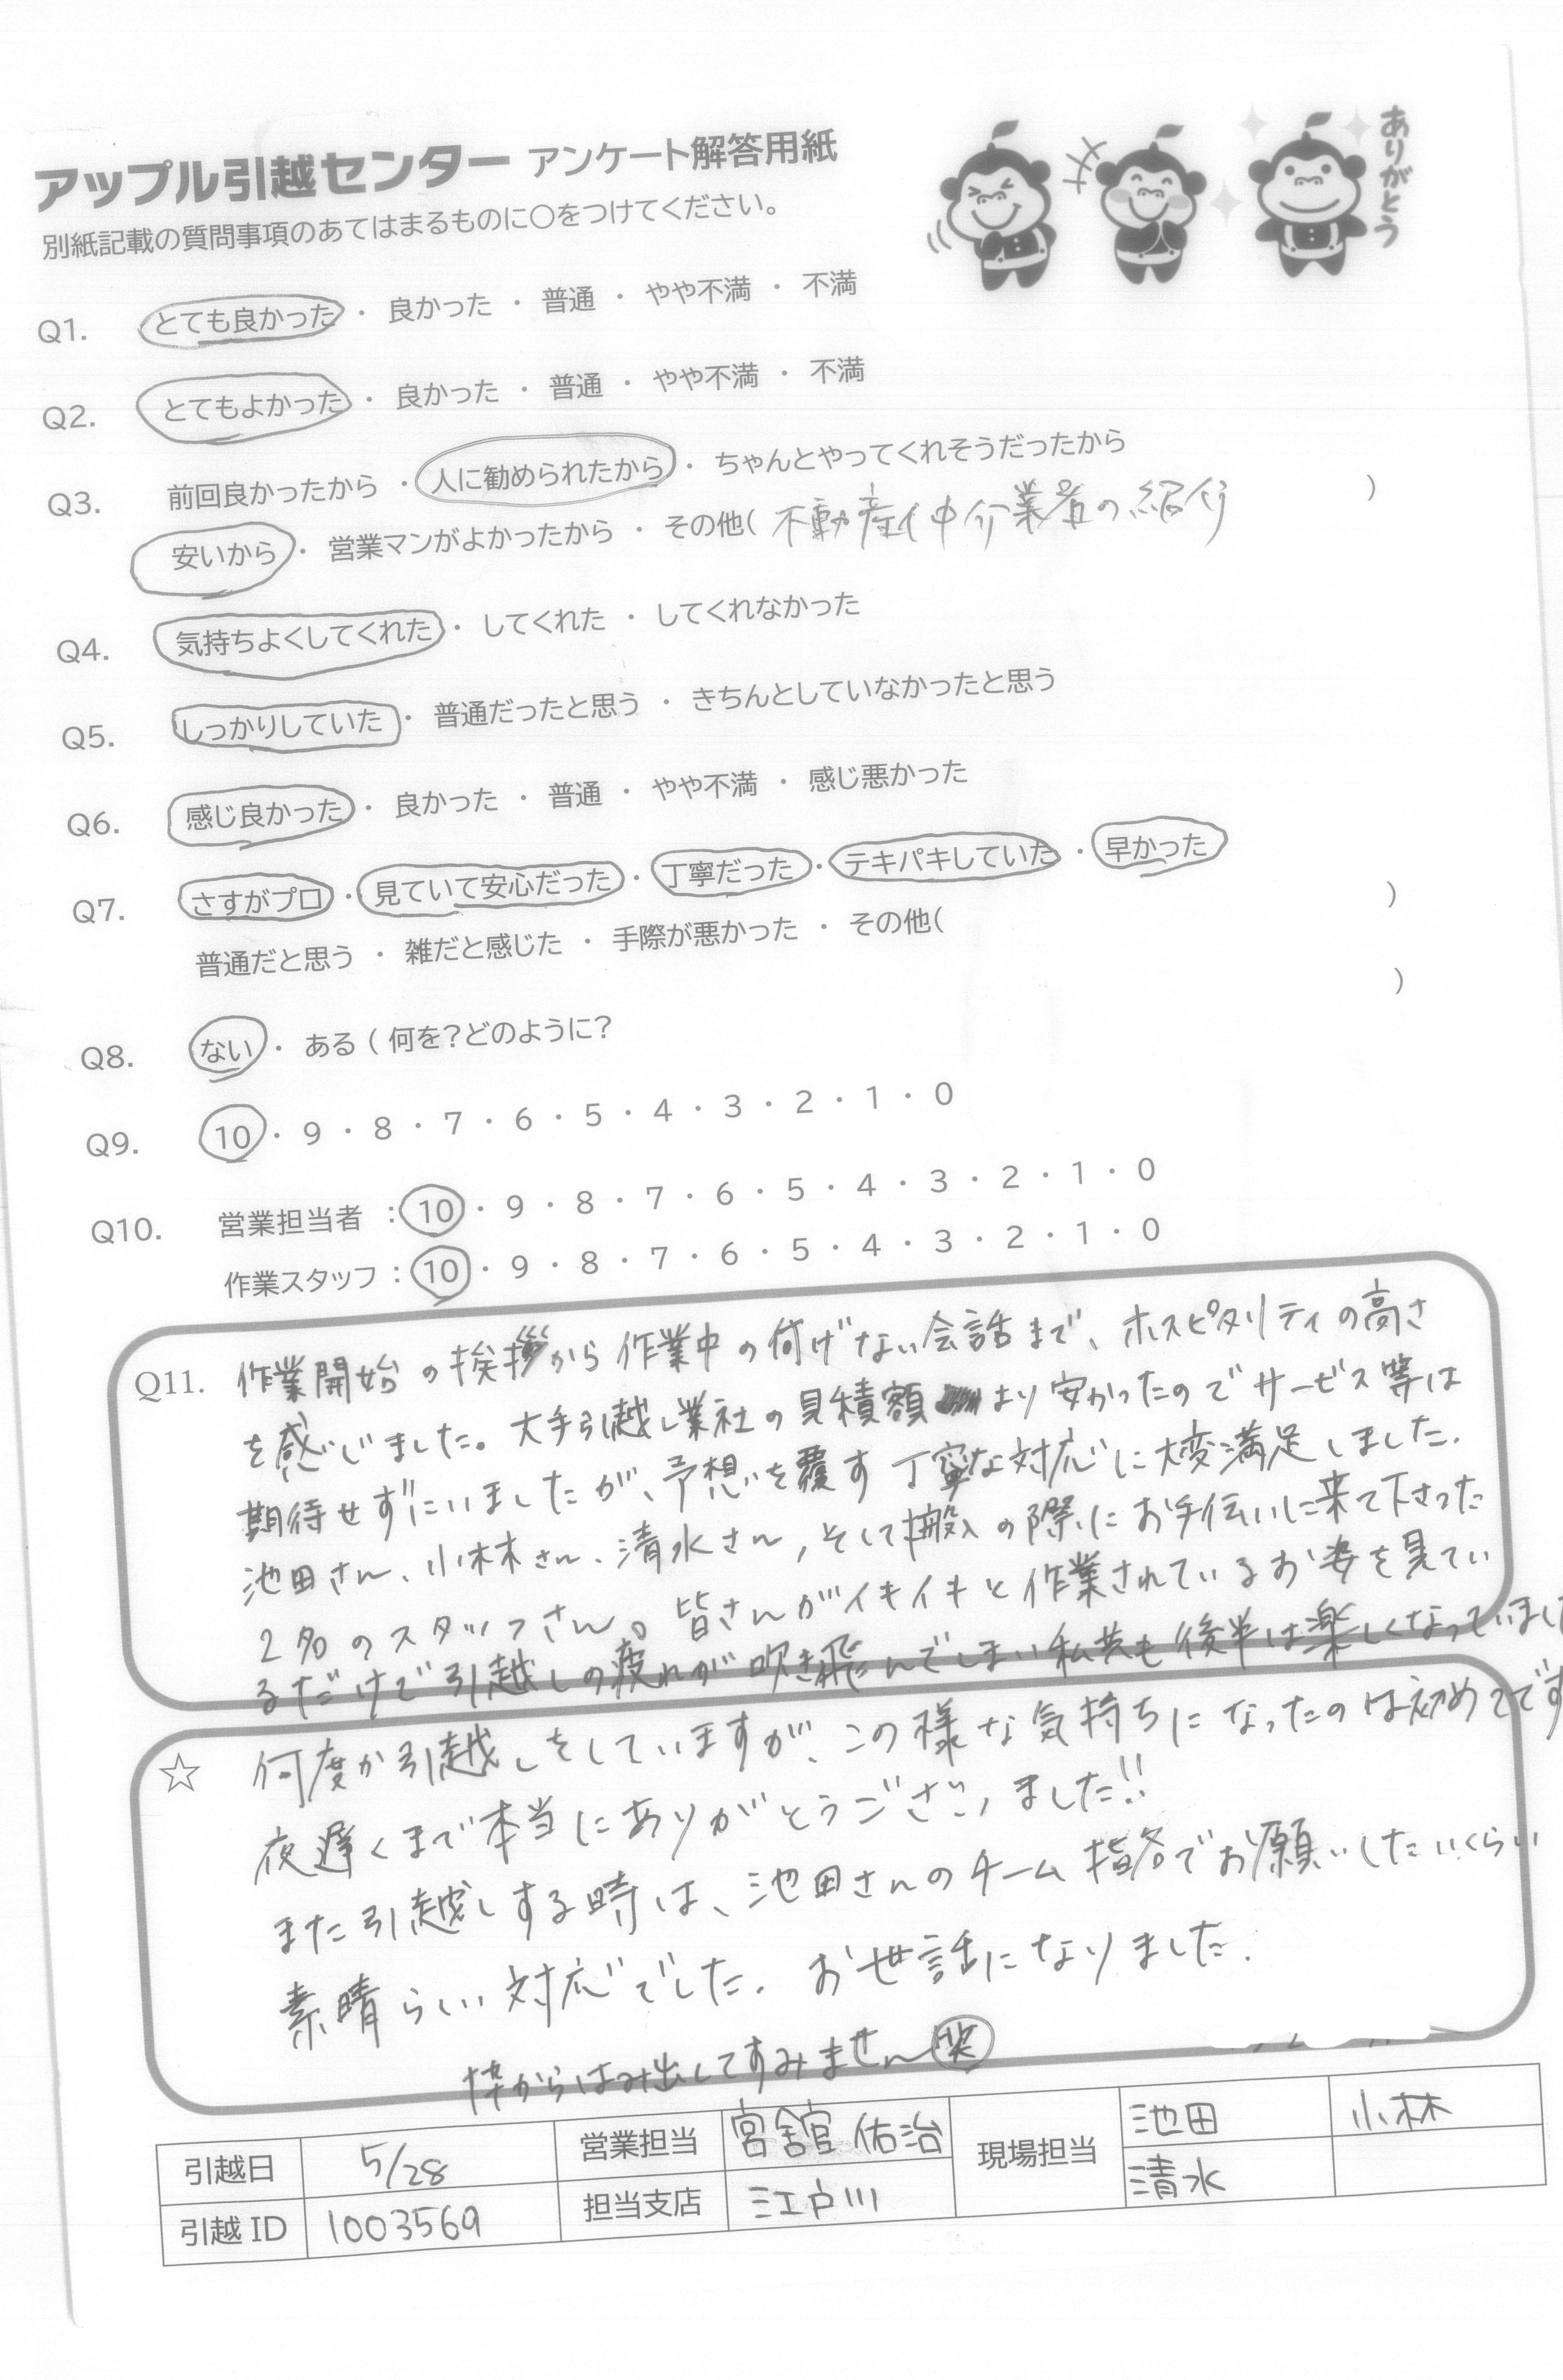 アップル引越センター アンケート解答用紙
ありがとう
別紙記載の質問事項のあてはまるものに○をつけてください。
Q1. とても良かった ・ 良かった ・ 普通 ・ やや不満 ・ 不満
Q2. とてもよかった ・ 良かった ・ 普通 ・ やや不満 ・ 不満
Q3. 前回良かったから ・ 人に勧められたから ・ ちゃんとやってくれそうだったから
安いから ・ 営業マンがよかったから ・ その他( 不動産仲介業者の紹介 )
Q4. 気持ちよくしてくれた ・ してくれた ・ してくれなかった
Q5. しっかりしていた ・ 普通だったと思う ・ きちんとしていなかったと思う
Q6. 感じ良かった ・ 良かった ・ 普通 ・ やや不満 ・ 感じ悪かった
Q7. さすがプロ ・ 見ていて安心だった ・ 丁寧だった ・ テキパキしていた ・ 早かった
普通だと思う ・ 雑だと感じた ・ 手際が悪かった ・ その他( )
Q8. ない ・ ある ( 何を?どのように? )
Q9. 10 ・ 9 ・ 8 ・ 7 ・ 6 ・ 5 ・ 4 ・ 3 ・ 2 ・ 1 ・ 0
Q10. 営業担当者 : 10 ・ 9 ・ 8 ・ 7 ・ 6 ・ 5 ・ 4 ・ 3 ・ 2 ・ 1 ・ 0
作業スタッフ : 10 ・ 9 ・ 8 ・ 7 ・ 6 ・ 5 ・ 4 ・ 3 ・ 2 ・ 1 ・ 0
Q11. 作業開始の挨拶から作業中の何げない会話まで、ホスピタリティの高さ
を感じました。大手引越し業社の見積額より安かったのでサービス等は
期待せずにいましたが、予想を覆す丁寧な対応に大変満足しました.
池田さん、小林さん、清水さん, そして搬入の際にお手伝いに来て下さった
2名のスタッフさん。皆さんがイキイキと作業されているお姿を見てい
るだけで引越しの疲れが吹き飛んでしまい私共も後半は楽しくなっていました
☆ 何度か引越しをしていますが、この様な気持ちになったのは初めてです
夜遅くまで本当にありがとうございました!!
また引越しする時は、池田さんのチーム指名でお願いしたいくらい
素晴らしい対応でした. お世話になりました.
枠からはみ出してすみません 笑
引越日 5/28 営業担当 宮舘 佑治 現場担当 池田 小林
引越ID 1003569 担当支店 江戸川 清水